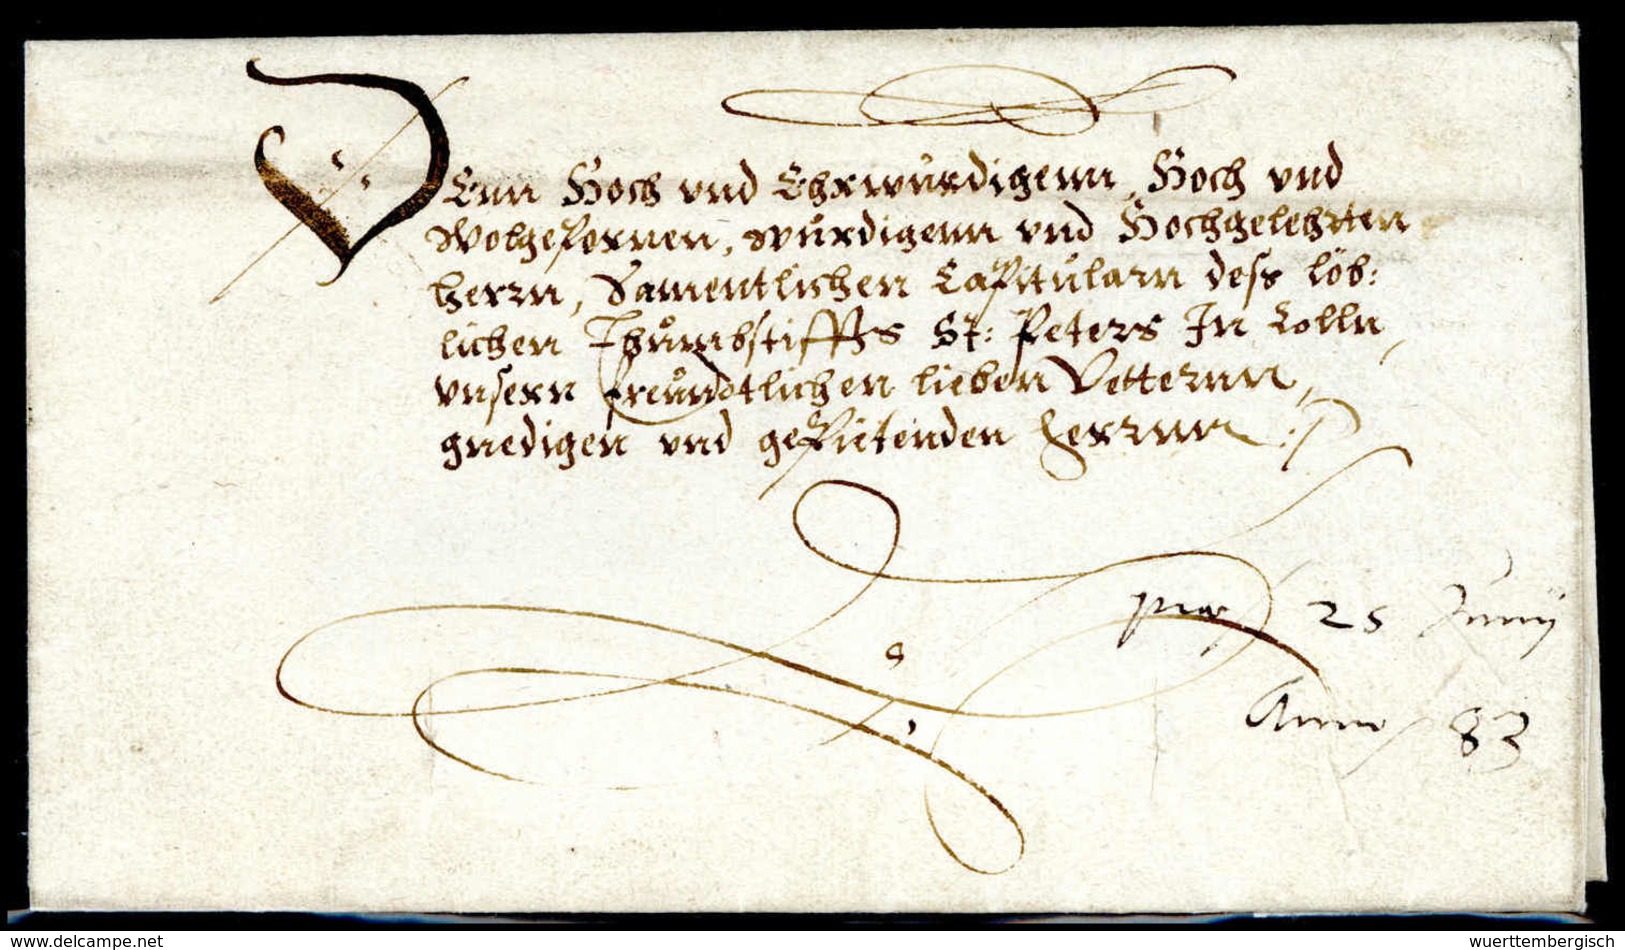 DEnn Hoch vnd Ehrwürdigenn, Hoch vnd
Wolgepornen, würdigenn vnd Hochgelehrten
herrn, Samentlichen Capitularn dess löb:
lichen Thůmbstiffts St: Peters In Colln,
vnsern freůndtlichen lieben Vetternn,
gnedigen vnd gepietenden herrnn :
25 Junij
Anno 83
www.delcampe.net
wuerttembergisch